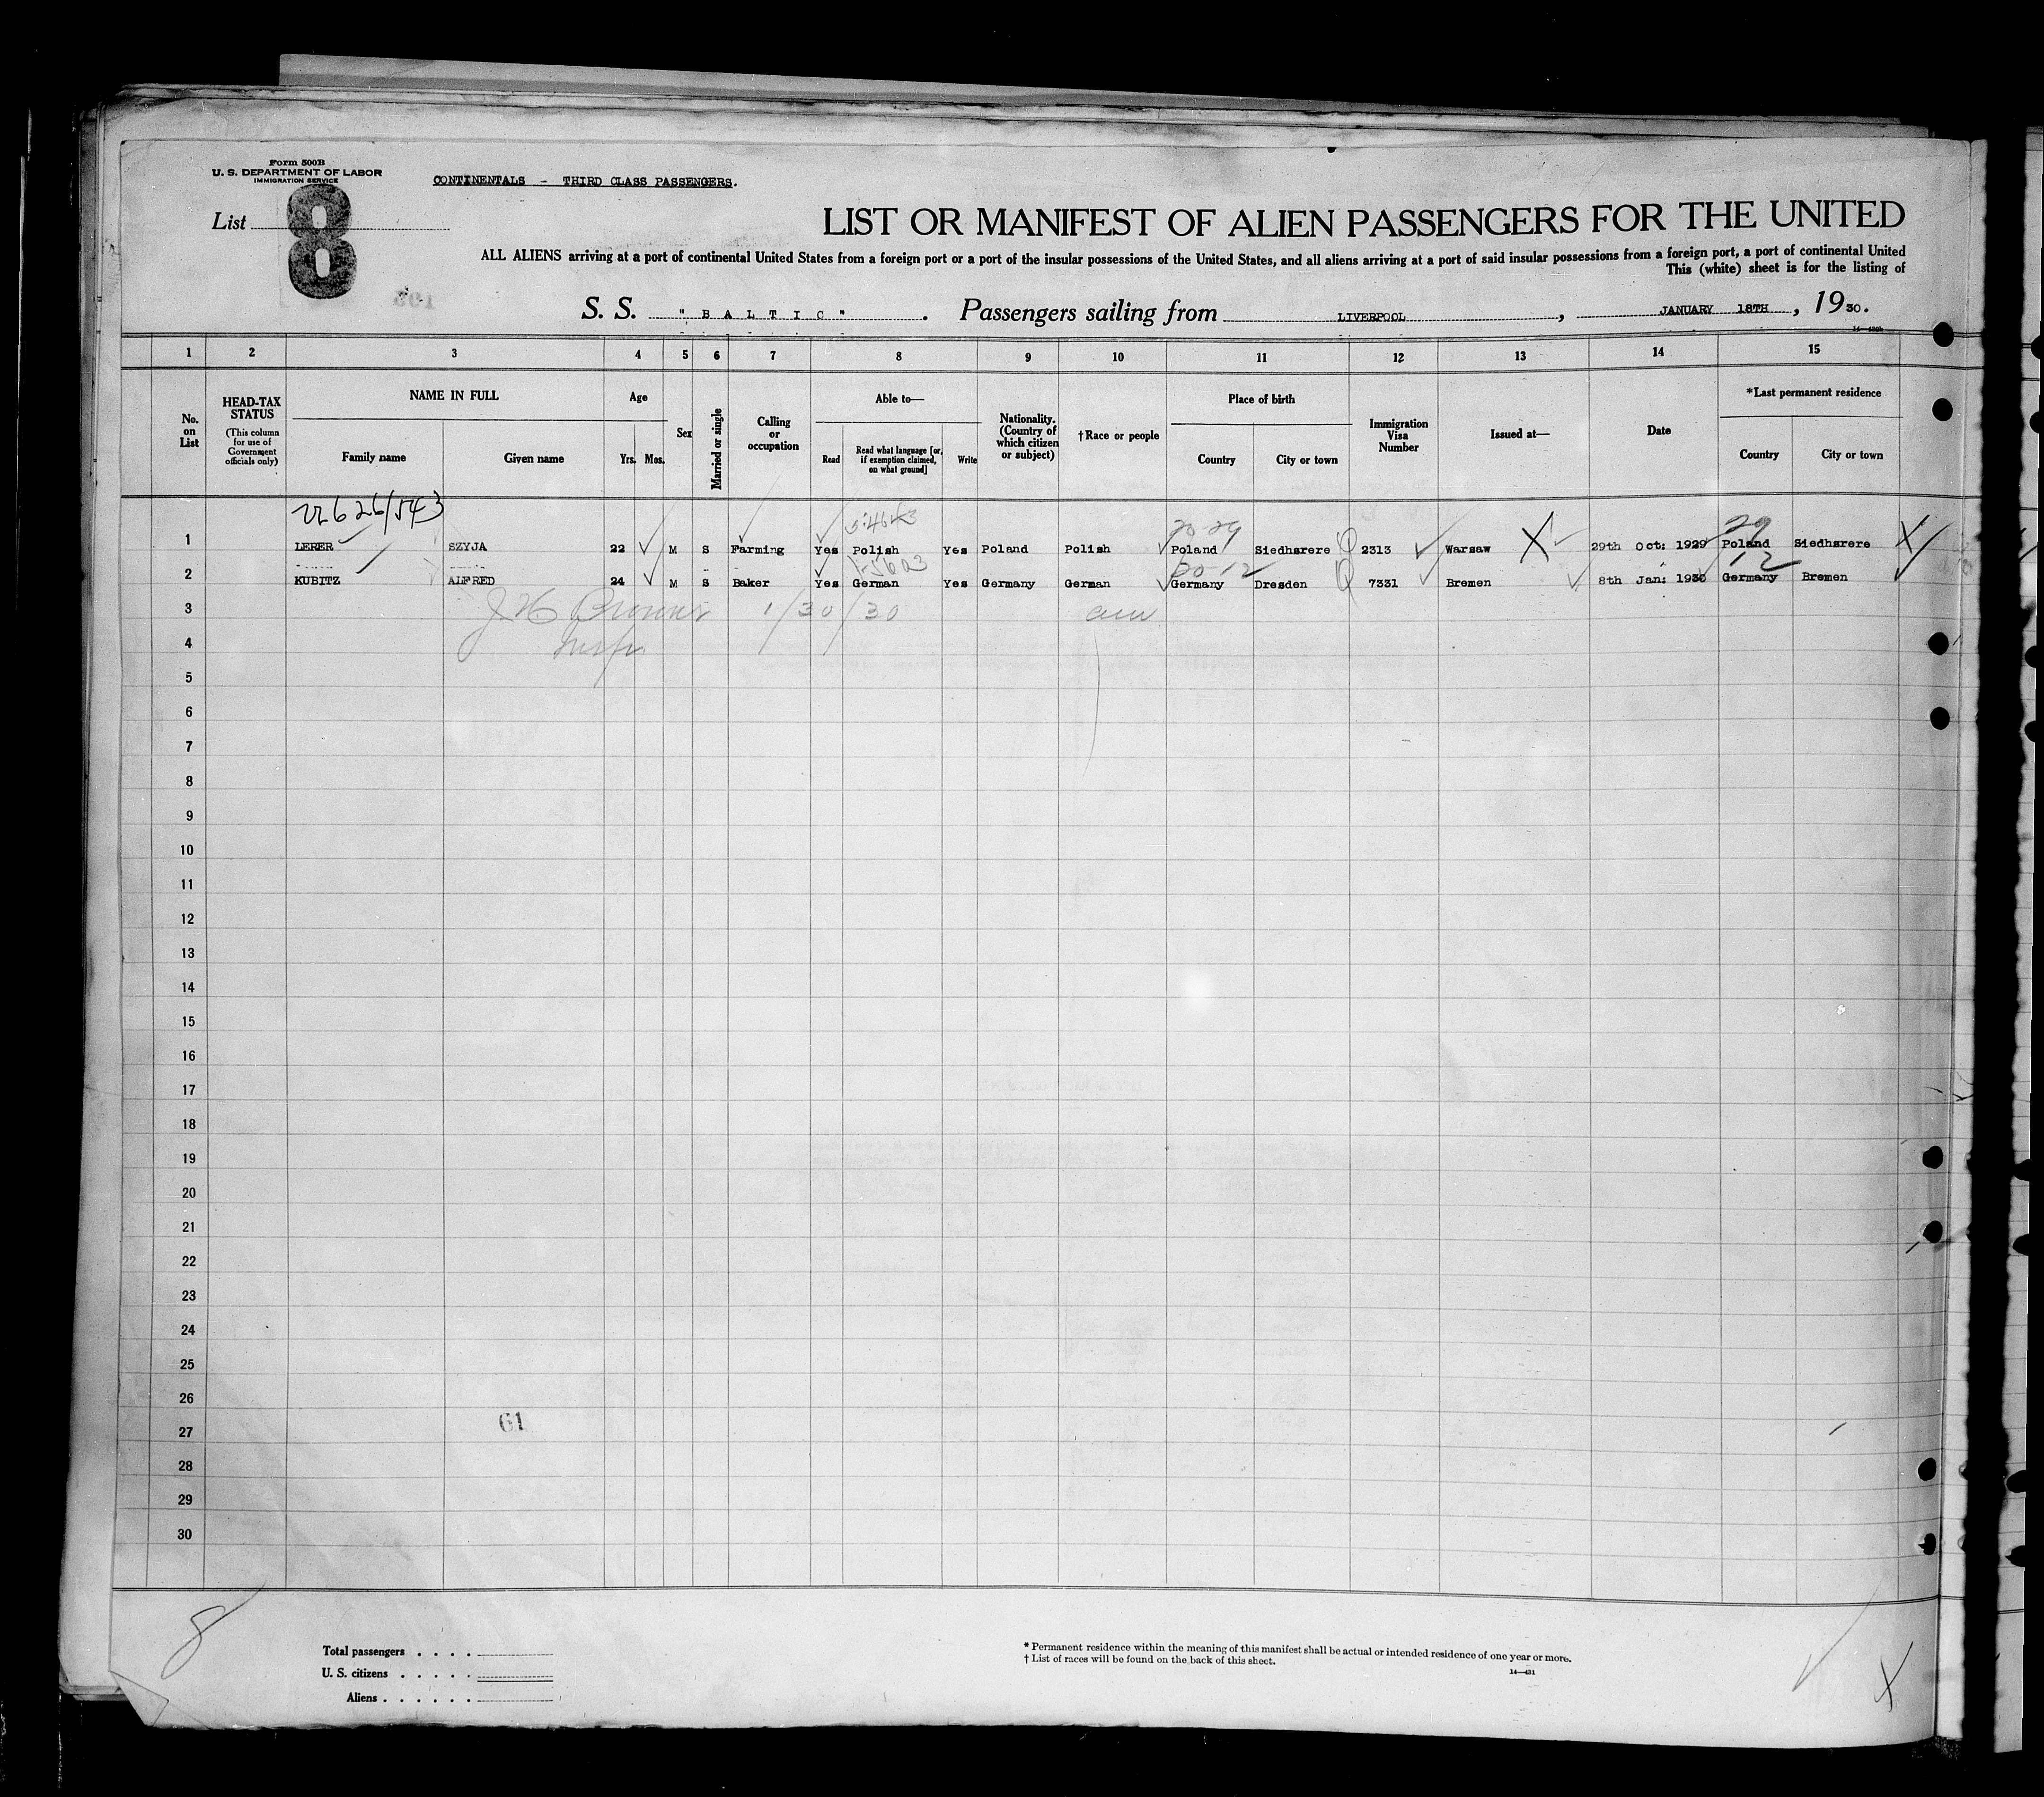 Form 500B
U. S. DEPARTMENT OF LABOR
IMMIGRATION SERVICE
CONTINENTALS - THIRD CLASS PASSENGERS.
List 8
LIST OR MANIFEST OF ALIEN PASSENGERS FOR THE UNITED
ALL ALIENS arriving at a port of continental United States from a foreign port or a port of the insular possessions of the United States, and all aliens arriving at a port of said insular possessions from a foreign port, a port of continental United
This (white) sheet is for the listing of
S. S. "BALTIC". Passengers sailing from LIVERPOOL, JANUARY 18TH, 1930.
1 2 3 4 5 6 7 8 9 10 11 12 13 14 15
No. on List
HEAD-TAX STATUS (This column for use of Government officials only)
NAME IN FULL
Family name Given name
Age
Yrs. Mos.
Sex
Married or single
Calling or occupation
Able to—
Read Read what language [or, if exemption claimed, on what ground] Write
Nationality. (Country of which citizen or subject)
†Race or people
Place of birth
Country City or town
Immigration Visa Number
Issued at—
Date
*Last permanent residence
Country City or town
22626/543
1 LERER SZYJA 22 M S Farming Yes Polish Yes Poland Polish Poland Siedhsrere 2313 Warsaw 29th Oct: 1929 Poland Siedhsrere
2 KUBITZ ALFRED 24 M S Baker Yes German Yes Germany German Germany Dresden 7331 Bremen 8th Jan: 1930 Germany Bremen
3 1/30/30
4
5
6
7
8
9
10
11
12
13
14
15
16
17
18
19
20
21
22
23
24
25
26
61
27
28
29
30
8
Total passengers . . . .
U. S. citizens . . . . .
Aliens . . . . . .
* Permanent residence within the meaning of this manifest shall be actual or intended residence of one year or more.
† List of races will be found on the back of this sheet.
14—431